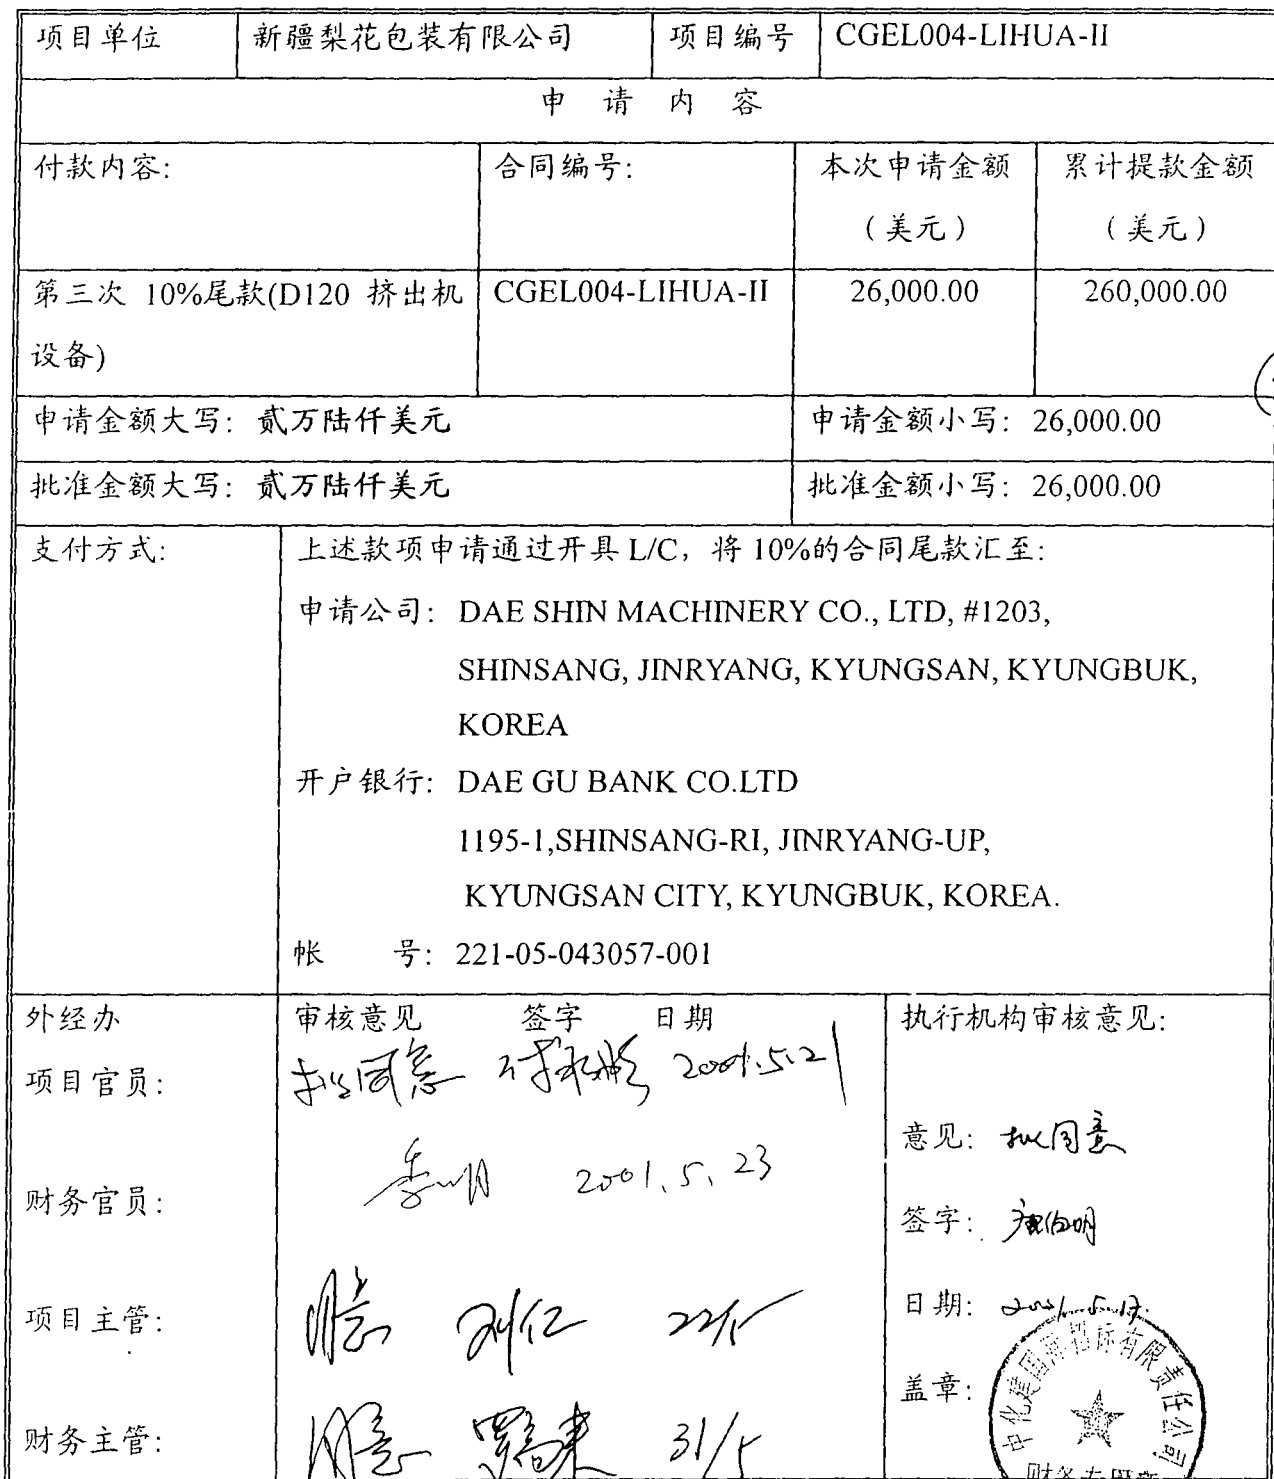 项目单位 新疆梨花包装有限公司 项目编号 CGEL004-LIHUA-II
申 请 内 容
付款内容: 合同编号: 本次申请金额 累计提款金额
（美元） （美元）
第三次 10%尾款(D120 挤出机 CGEL004-LIHUA-II 26,000.00 260,000.00
设备)
申请金额大写: 贰万陆仟美元 申请金额小写: 26,000.00
批准金额大写: 贰万陆仟美元 批准金额小写: 26,000.00
支付方式: 上述款项申请通过开具 L/C, 将 10%的合同尾款汇至:
申请公司: DAE SHIN MACHINERY CO., LTD, #1203,
SHINSANG, JINRYANG, KYUNGSAN, KYUNGBUK,
KOREA
开户银行: DAE GU BANK CO.LTD
1195-1,SHINSANG-RI, JINRYANG-UP,
KYUNGSAN CITY, KYUNGBUK, KOREA.
帐 号: 221-05-043057-001
外经办 审核意见 签字 日期 执行机构审核意见:
项目官员: 拟同意 2001.5.21
意见: 拟同意
财务官员: 2001.5.23
签字:
项目主管: 同意 刘仁 22/5
日期: 2001.5.17.
盖章:
财务主管: 同意 31/5
中化建国际招标有限责任公司
财务专用章